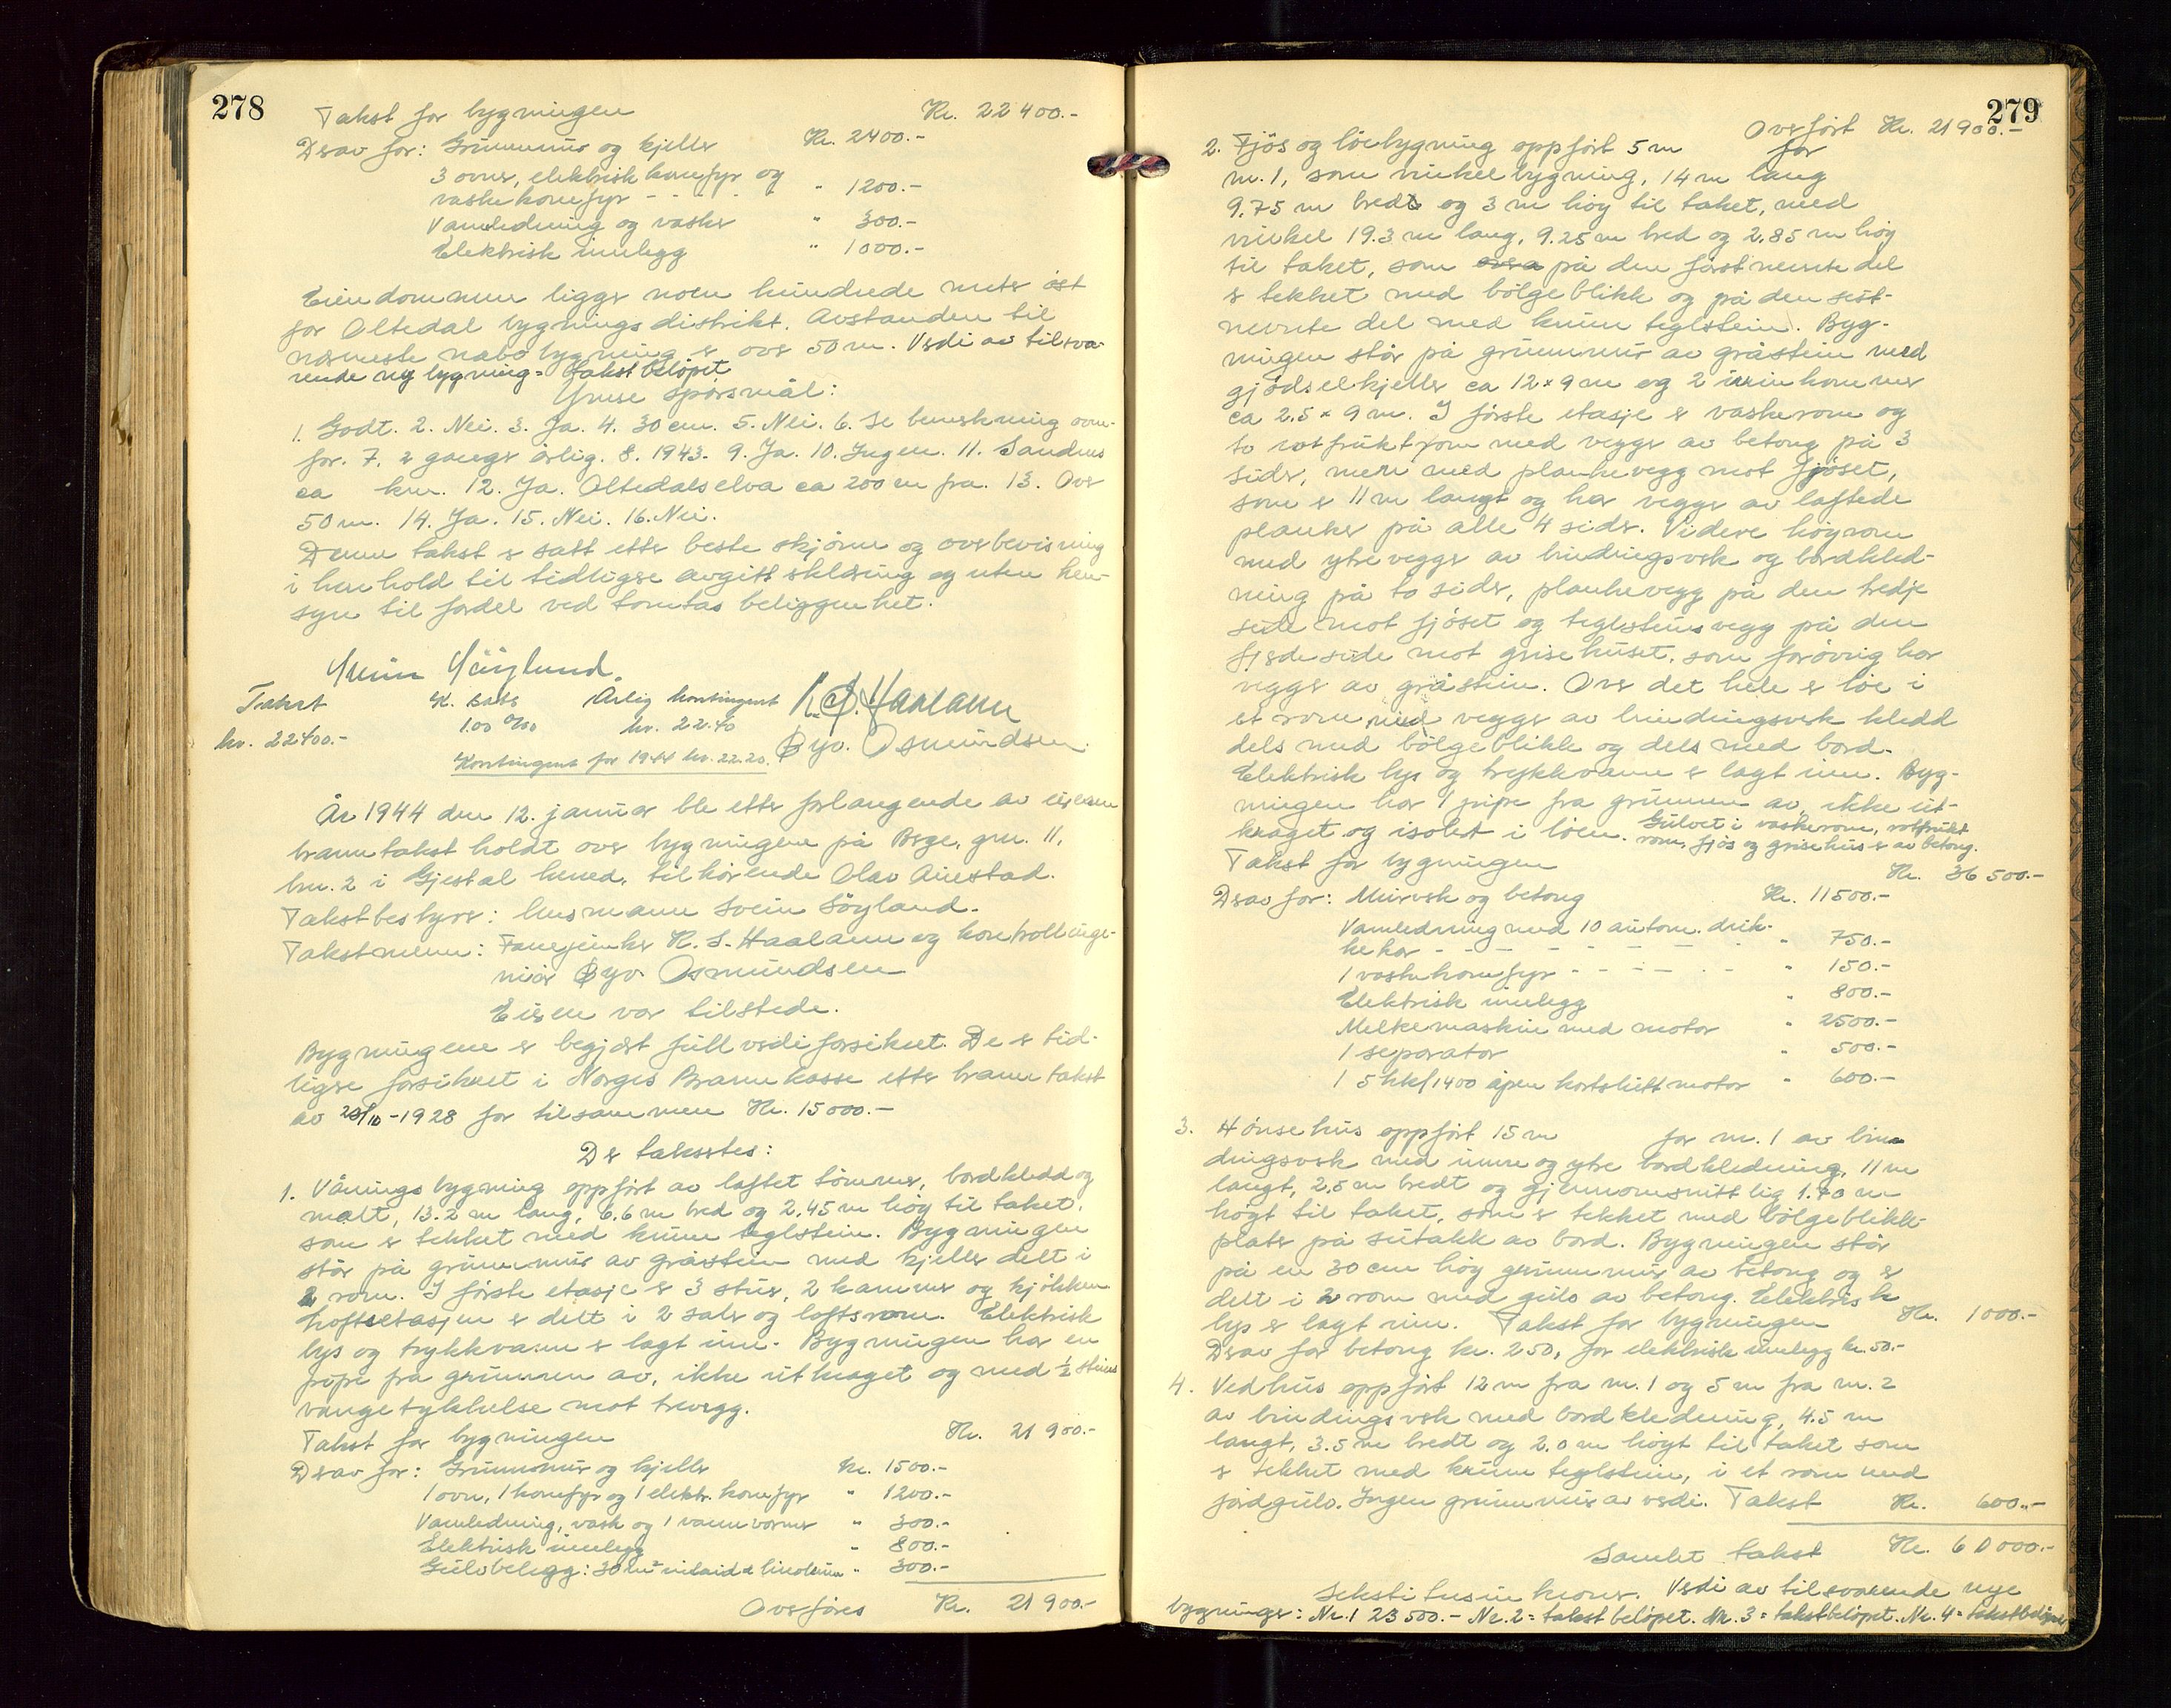 278
Takst for bygningen Kr. 22400.-
Derav for: Grunnmur og kjeller Kr. 2400.-
3 ovner, elektrisk komfyr og
vaskekomfyr - - - - " 1200.-
Vannledning og vasker " 300.-
Elektrisk innlegg " 1000.-
Eiendommen ligger noen hundrede meter øst
for Oltedal bygningsdistrikt. Avstanden til
nærmeste nabobygning er over 50 m. Verdi av tilsva-
rende ny bygning = takstbeløpet
Ymse spørsmål:
1. Godt. 2. Nei. 3. Ja. 4. 30 cm. 5. Nei. 6. Se bemerkning oven-
for. 7. 2 ganger årlig. 8. 1943. 9. Ja. 10. Ingen. 11. Sandnes
ca km. 12. Ja. Oltedalselva ca 200 m fra. 13. Over
50 m. 14. Ja. 15. Nei. 16. Nei.
Denne takst er satt etter beste skjønn og overbevisning
i henhold til tidligere avgitt erklæring og uten hen-
syn til fordel ved tomtas beliggenhet.
Svein Söyland.
Takst Kl. sats Årlig kontingent K. S. Haaland
kr. 22400.- 1.00 o/oo kr. 22.40
Kontingent for 1944 kr. 22.20. Øyv. Osmundsen.
År 1944 den 12. januar ble etter forlangende av eieren
branntakst holdt over bygningene på Berge, gnr. 11,
bnr. 2 i Gjestal herred, tilhørende Olav Auestad.
Takstbestyrer: lensmann Svein Söyland.
Takstmenn: Fanejunker K. S. Haaland og kontrollinge-
niør Øyv. Osmundsen
Eieren var tilstede.
Bygningene er begjært fullverdiforsikret. De er tid-
ligere forsikret i Norges Brannkasse etter branntakst
av 23/10-1928 for tilsammen Kr. 15000.-
Der takstes:
1. Våningsbygning oppført av laftet tømmer, bordkledd og
malt, 13.2 m lang, 6.6 m bred og 2.45 m høy til taket,
som er tekket med krum teglstein. Bygningen
står på grunnmur av gråstein med kjeller delt i
2 rom. I første etasje er 3 stuer, 2 kammer og kjøkken
Loftsetasjen er delt i 2 saler og loftsrom. Elektrisk
lys og trykkvann er lagt inn. Bygningen har en
pipe fra grunnen av, ikke utkraget og med ½ steins
vangetykkelse mot trevegg.
Takst for bygningen Kr. 21 900.-
Derav for: Grunnmur og kjeller kr. 1500.-
1 ovn, 1 komfyr og 1 elektr. komfyr " 1200.-
Vannledning, vask og 1 vannvarmer " 300.-
Elektrisk innlegg " 800.-
Gulvbelegg: 30 m² inlaid linoleum " 300.-
Overføres Kr. 21 900.-
279
Overført Kr. 21 900.-
2. Fjøs og løebygning oppført 5 m for
nr. 1, som vinkelbygning, 14 m lang
9.75 m bred og 3 m høy til taket, med
vinkel 19.3 m lang, 9.25 m bred og 2.85 m høy
til taket, som på den førstnevnte del
er tekket med bølgeblikk og på den sist-
nevnte del med krum teglstein. Byg-
ningen står på grunnmur av gråstein med
gjødselkjeller ca 12 x 9 m og 2 urinkommer
ca 2.5 x 9 m. I første etasje er vaskerom og
to rotfruktrom med vegger av betong på 3
sider, men med plankevegg mot fjøset,
som er 11 m langt og har vegger av laftede
planker på alle 4 sider. Videre høyrom
med yttervegger av bindingsverk og bordkled-
ning på to sider, plankevegg på den tredje
side mot fjøset og teglsteinsvegg på den
fjerde side mot grisehuset, som forøvrig har
vegger av gråstein. Over det hele er løe i
et rom med vegger av bindingsverk kledd
dels med bølgeblikk og dels med bord.
Elektrisk lys og trykkvann er lagt inn. Byg-
ningen har 1 pipe fra grunnen av, ikke ut-
kraget og isolert i løen. Gulvet i vaskerom, rotfrukt
rom, fjøs og grisehus er av betong.
Takst for bygningen Kr. 36 500.-
Derav for: Murverk og betong Kr. 11500.-
Vannledning med 10 autom. drik-
kekar - - - - - - " 750.-
1 vaskekomfyr - - - - - " 150.-
Elektrisk innlegg " 800.-
Melkemaskin med motor " 2500.-
1 separator " 500.-
1 5 hk/1400 åpen kortsluttmotor " 600.-
3. Hønsehus oppført 15 m for nr. 1 av bin
dingsverk med innen og ytre bordkledning, 11 m
langt, 2.5 m bredt og gjennomsnittlig 1.70 m
høgt til taket, som er tekket med bølgeblikk-
plater på sutakk av bord. Bygningen står
på en 30 cm høy grunnmur av betong og er
delt i 2 rom med gulv av betong. Elektrisk
lys er lagt inn. Takst for bygningen Kr. 1000.-
Derav for betong kr. 250, for elektrisk innlegg kr. 50.-
4. Vedhus oppført 12 m fra nr. 1 og 5 m fra nr. 2
av bindingsverk med bordkledning, 4.5 m
langt, 3.5 m bredt og 2.0 m høgt til taket som
er tekket med krum teglstein, i et rom med
jordgulv. Ingen grunnmur av verdi. Takst Kr. 600.-
Samlet takst Kr. 60000.-
Seksti tusin kroner. Verdi av tilsvarende nye
bygninger: Nr. 1 23500.- Nr. 2 = takstbeløpet. Nr. 3 = takstbeløpet. Nr. 4 = takstbeløpet